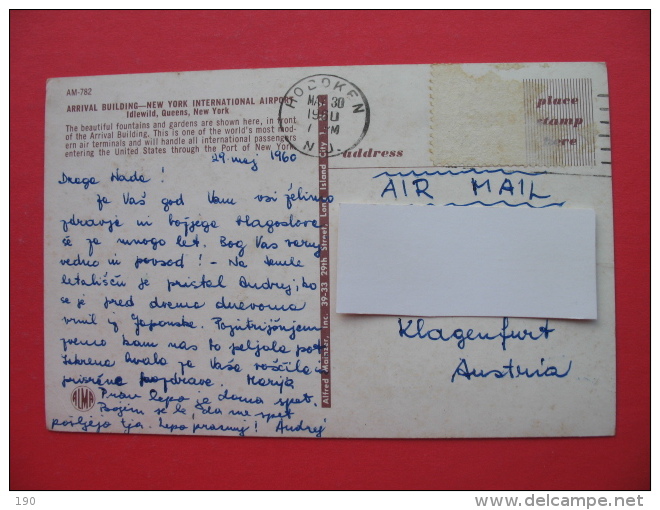 AM-782
ARRIVAL BUILDING—NEW YORK INTERNATIONAL AIRPORT
Idlewild, Queens, New York
The beautiful fountains and gardens are shown here, in front
of the Arrival Building. This is one of the world's most mod-
ern air terminals and will handle all international passengers
entering the United States through the Port of New York.
HOBOKEN
30
N.J.
place
stamp
here
Address
29. maj 1960
Draga Nada!
Za Vaš god Vam vsi želimo
zdravje in božjega blagoslova
še za mnogo let. Bog Vas varuj
vedno in povsod! - Na temle
letališču je pristal Andrej, ko
se je pred dvema dnevoma
vrnil z Japonske. Pojutrišnjem
pa nas to peljala pot
Iskrena hvala za Vaša voščila in
prisrčne pozdrave. Marija
Prav lepo je doma spet.
Bojim se le, da me spet
pošljejo tja. Lepo praznuj! Andrej
AIR MAIL
Klagenfurt
Austria
Alfred Mainzer, Inc. 39-33 29th Street, Long Island City
ALMA
190
delcampe.net